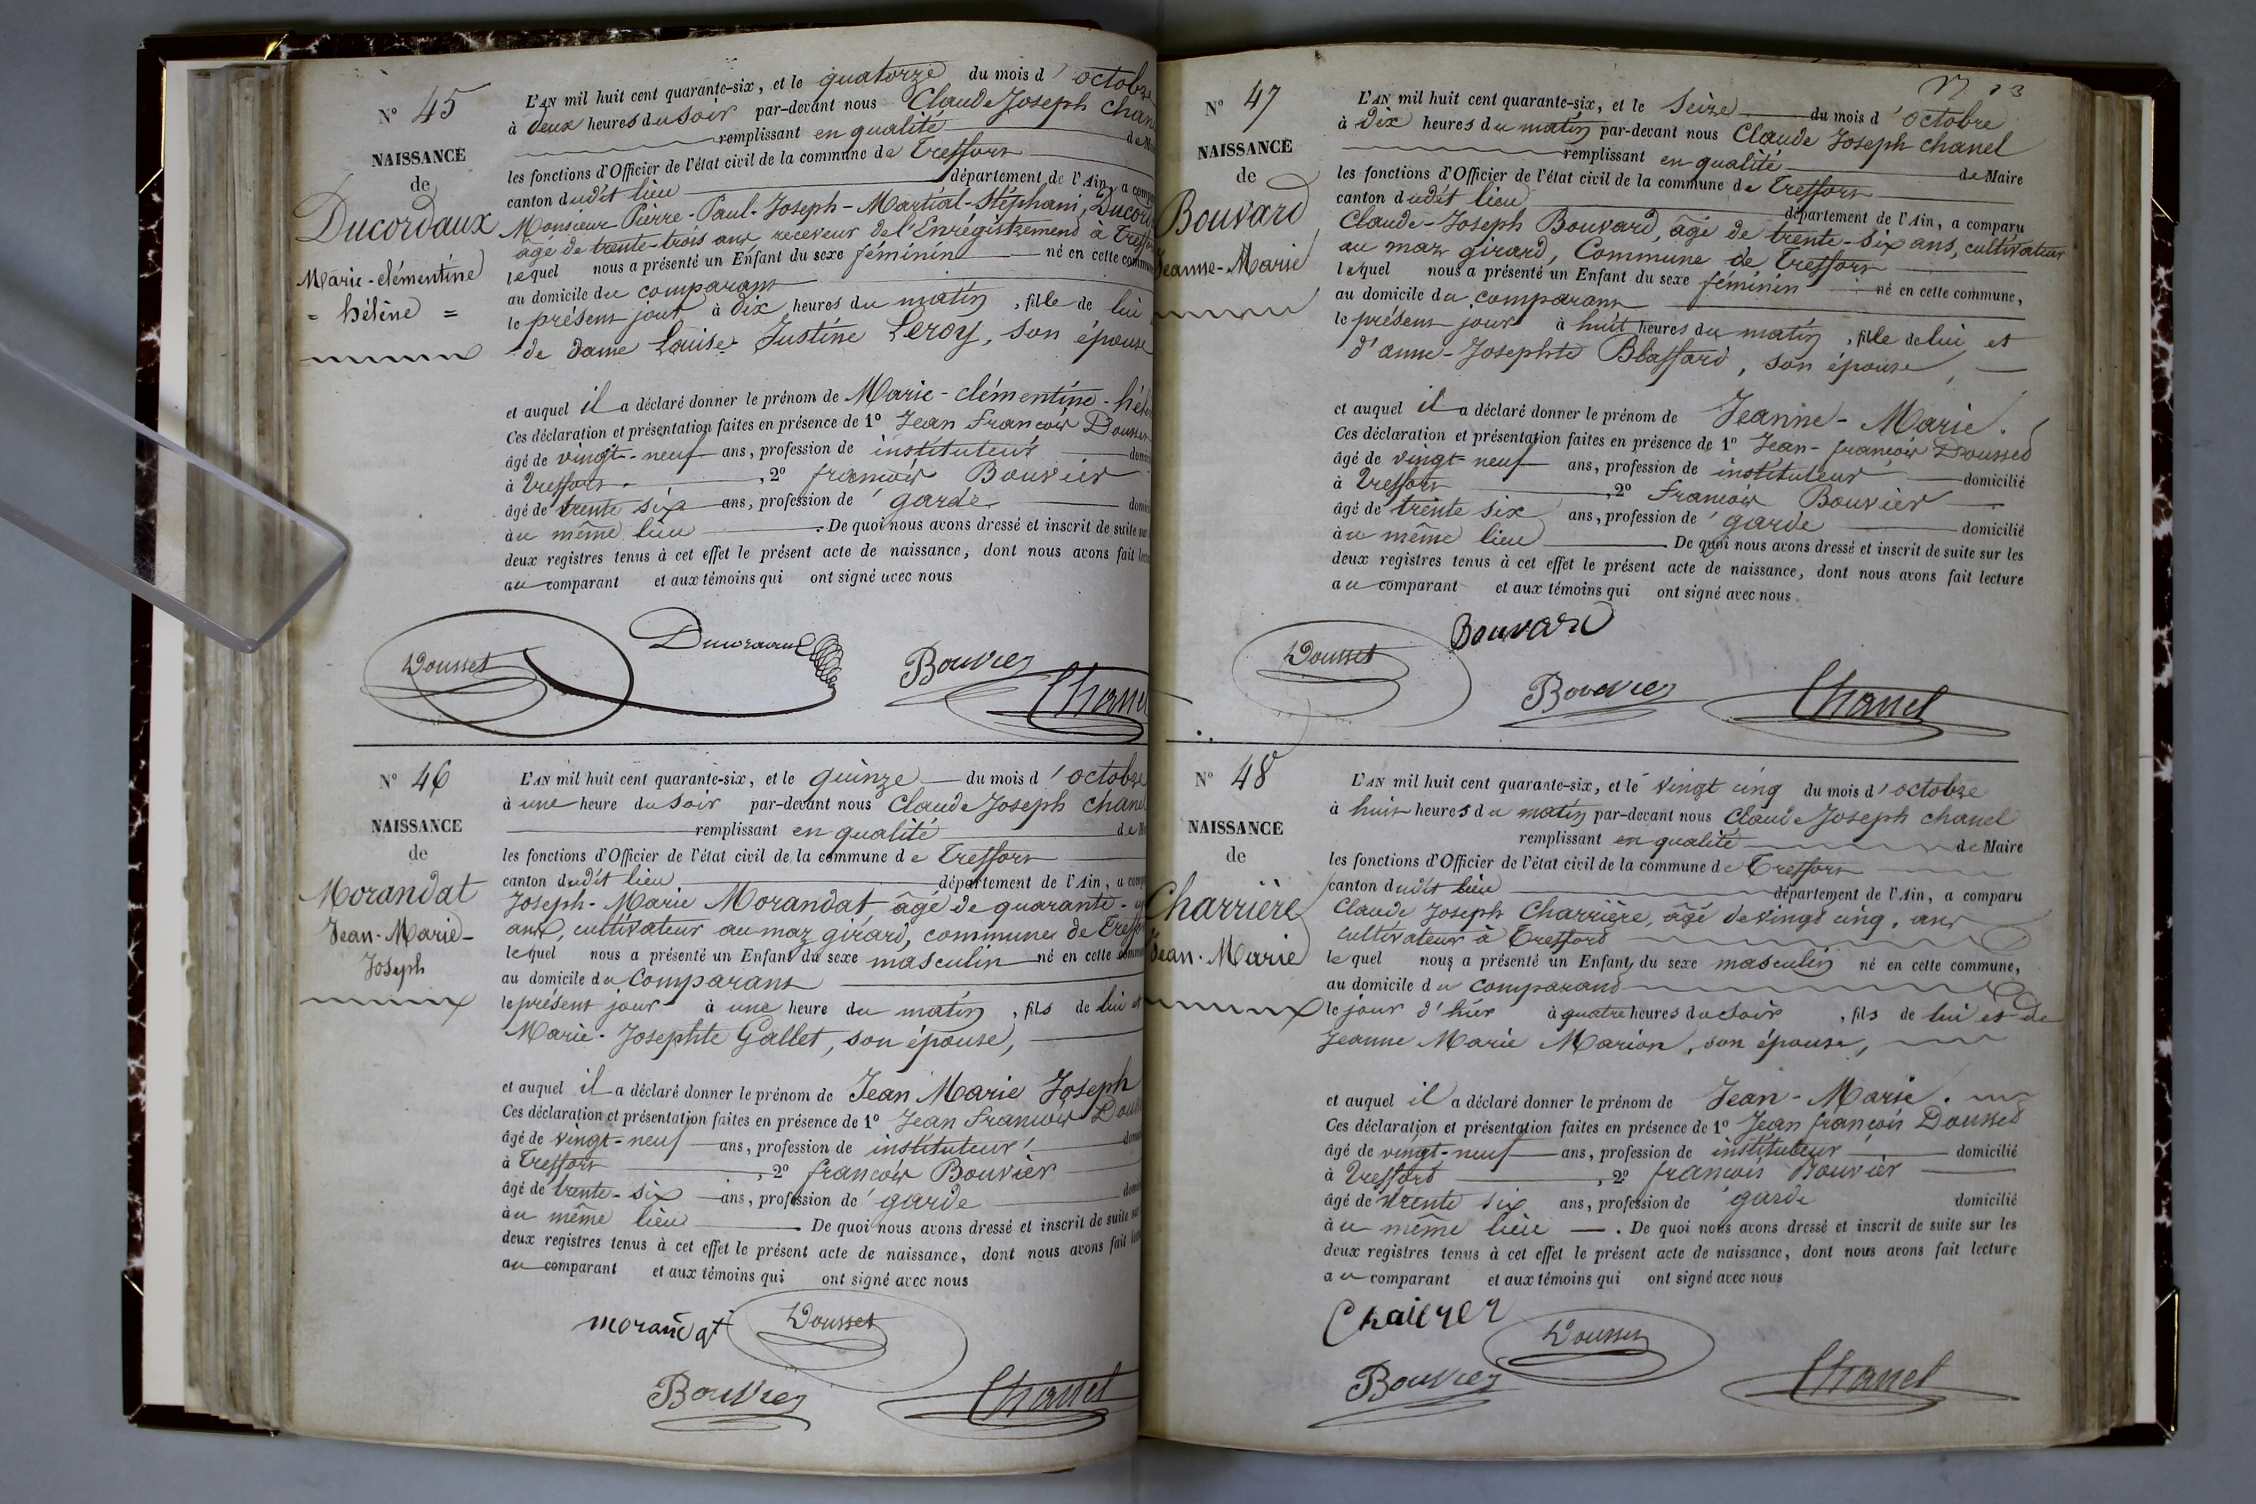 N° 45
NAISSANCE
de
Ducordaux
Marie-clémentine
= hélène =
L'AN mil huit cent quarante-six, et le quatorze du mois d'octobre
à deux heures du soir par-devant nous Claude Joseph Chan
remplissant en qualité de
les fonctions d'Officier de l'état civil de la commune de Treffort
canton dudit lieu département de l'Ain, a comp
Monsieur Pierre-Paul-Joseph-Martial-Stéphani, Ducor
âgé de trente-trois ans receveur de l'Enrégistrement à Treff
lequel nous a présenté un Enfant du sexe féminin né en cette comm
au domicile du comparant
le présent jour à dix heures du matin, fille de lui
de dame Louise Justine Leroy, son épouse
et auquel il a déclaré donner le prénom de Marie-clémentine-hél
Ces déclaration et présentation faites en présence de 1° Jean François Dousse
âgé de vingt-neuf ans, profession de instituteur
à Treffort, 2° françois Bouvier
âgé de trente six ans, profession de garde
au même lieu. De quoi nous avons dressé et inscrit de suite sur
deux registres tenus à cet effet le présent acte de naissance, dont nous avons fait lec
au comparant et aux témoins qui ont signé avec nous
Dousset
Bouvier
Chanel
N° 46
NAISSANCE
de
Morandat
Jean-Marie-
Joseph
L'AN mil huit cent quarante-six, et le quinze du mois d'octobre
à une heure du soir par-devant nous Claude Joseph chanel
remplissant en qualité de M
les fonctions d'Officier de l'état civil de la commune de Treffort
canton dudit lieu département de l'Ain, a comp
Joseph-Marie Morandat âgé de quarante-
ans, cultivateur au maz girard, commune de Treff
lequel nous a présenté un Enfant du sexe masculin né en cette comm
au domicile du comparant
le présent jour à une heure du matin, fils de lui et
Marie-Josephte Gallet, son épouse,
et auquel il a déclaré donner le prénom de Jean Marie Joseph
Ces déclaration et présentation faites en présence de 1° Jean François Douss
âgé de vingt-neuf ans, profession de instituteur
à Treffort, 2° françois Bouvier
âgé de trente-six ans, profession de garde
au même lieu. De quoi nous avons dressé et inscrit de suite sur
deux registres tenus à cet effet le présent acte de naissance, dont nous avons fait lec
au comparant et aux témoins qui ont signé avec nous
morandat
Dousset
Bouvier
Chanel
N° 47
NAISSANCE
de
Bouvard
Jeanne-Marie
L'AN mil huit cent quarante-six, et le Seize du mois d'octobre
à Dix heures du matin par-devant nous Claude Joseph chanel
remplissant en qualité de Maire
les fonctions d'Officier de l'état civil de la commune de Treffort
canton dudit lieu département de l'Ain, a comparu
Claude-Joseph Bouvard, âgé de trente-six ans, cultivateur
au maz girard, Commune de Treffort
lequel nous a présenté un Enfant du sexe féminin né en cette commune,
au domicile du comparant
le présent jour à huit heures du matin, fille de lui et
d'anne-Josephte Blaffard, son épouse,
et auquel il a déclaré donner le prénom de Jeanne-Marie.
Ces déclaration et présentation faites en présence de 1° Jean-françois Dousset
âgé de vingt neuf ans, profession de instituteur domicilié
à Treffort, 2° françois Bouvier
âgé de trente six ans, profession de garde domicilié
au même lieu. De quoi nous avons dressé et inscrit de suite sur les
deux registres tenus à cet effet le présent acte de naissance, dont nous avons fait lecture
au comparant et aux témoins qui ont signé avec nous
Bouvard
Dousset
Bouvier
Chanel
N° 48
NAISSANCE
de
Charrière
Jean-Marie
L'AN mil huit cent quarante-six, et le vingt cinq du mois d'octobre
à huit heures du matin par-devant nous Claude Joseph chanel
remplissant en qualité de Maire
les fonctions d'Officier de l'état civil de la commune de Treffort
canton dudit lieu département de l'Ain, a comparu
Claude Joseph Charrière, âgé de vingt cinq, ans
cultivateur à Treffort
lequel nous a présenté un Enfant du sexe masculin né en cette commune,
au domicile du comparant
le jour d'hier à quatre heures du soir, fils de lui et de
Jeanne Marie Marion, son épouse,
et auquel il a déclaré donner le prénom de Jean-Marie.
Ces déclaration et présentation faites en présence de 1° Jean françois Dousset
âgé de vingt-neuf ans, profession de instituteur domicilié
à Treffort, 2° françois Bouvier
âgé de trente six ans, profession de garde domicilié
au même lieu. De quoi nous avons dressé et inscrit de suite sur les
deux registres tenus à cet effet le présent acte de naissance, dont nous avons fait lecture
au comparant et aux témoins qui ont signé avec nous
Dousset
Bouvier
Chanel